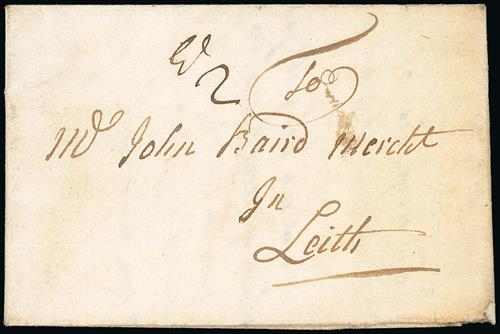 2
To
Mr John Baird Mercht
In
Leith